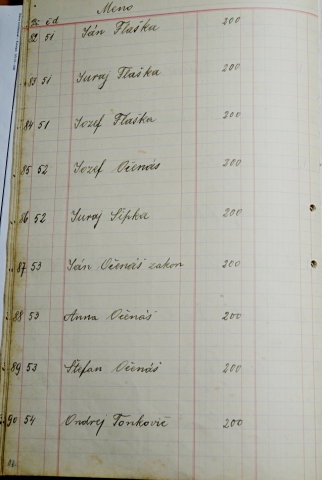 Meno
čd
82 51 Ján Flaška 200
83 51 Juraj Flaška 200
84 51 Jozef Flaška 200
85 52 Jozef Očenáš 200
86 52 Juraj Šipka 200
87 53 Ján Očenáš zakon 200
88 53 Anna Očenáš 200
89 53 Štefan Očenáš 200
90 54 Ondrej Tonkovič 200